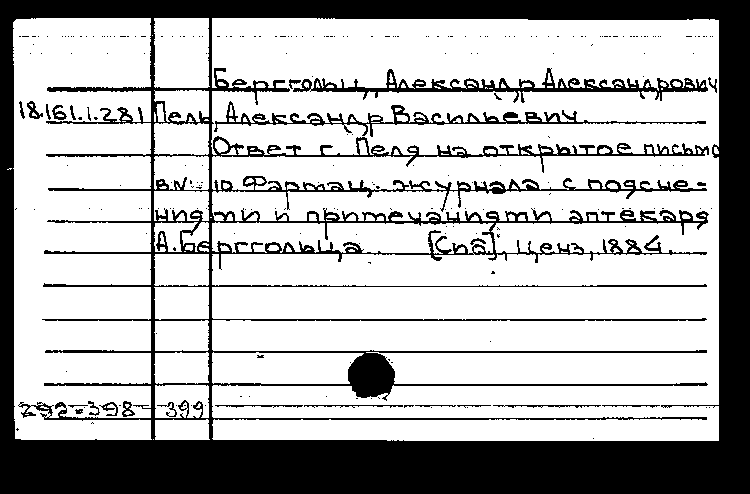 Берггольц, Александр Александрович
18.161.1.281 Пель, Александр Васильевич.
Ответ г. Пеля на открытое письмо
в № 10 Фармац. журнала с поясне-
ниями и примечаниями аптекаря
А. Берггольца [Спб], ценз, 1884.
292-398 399